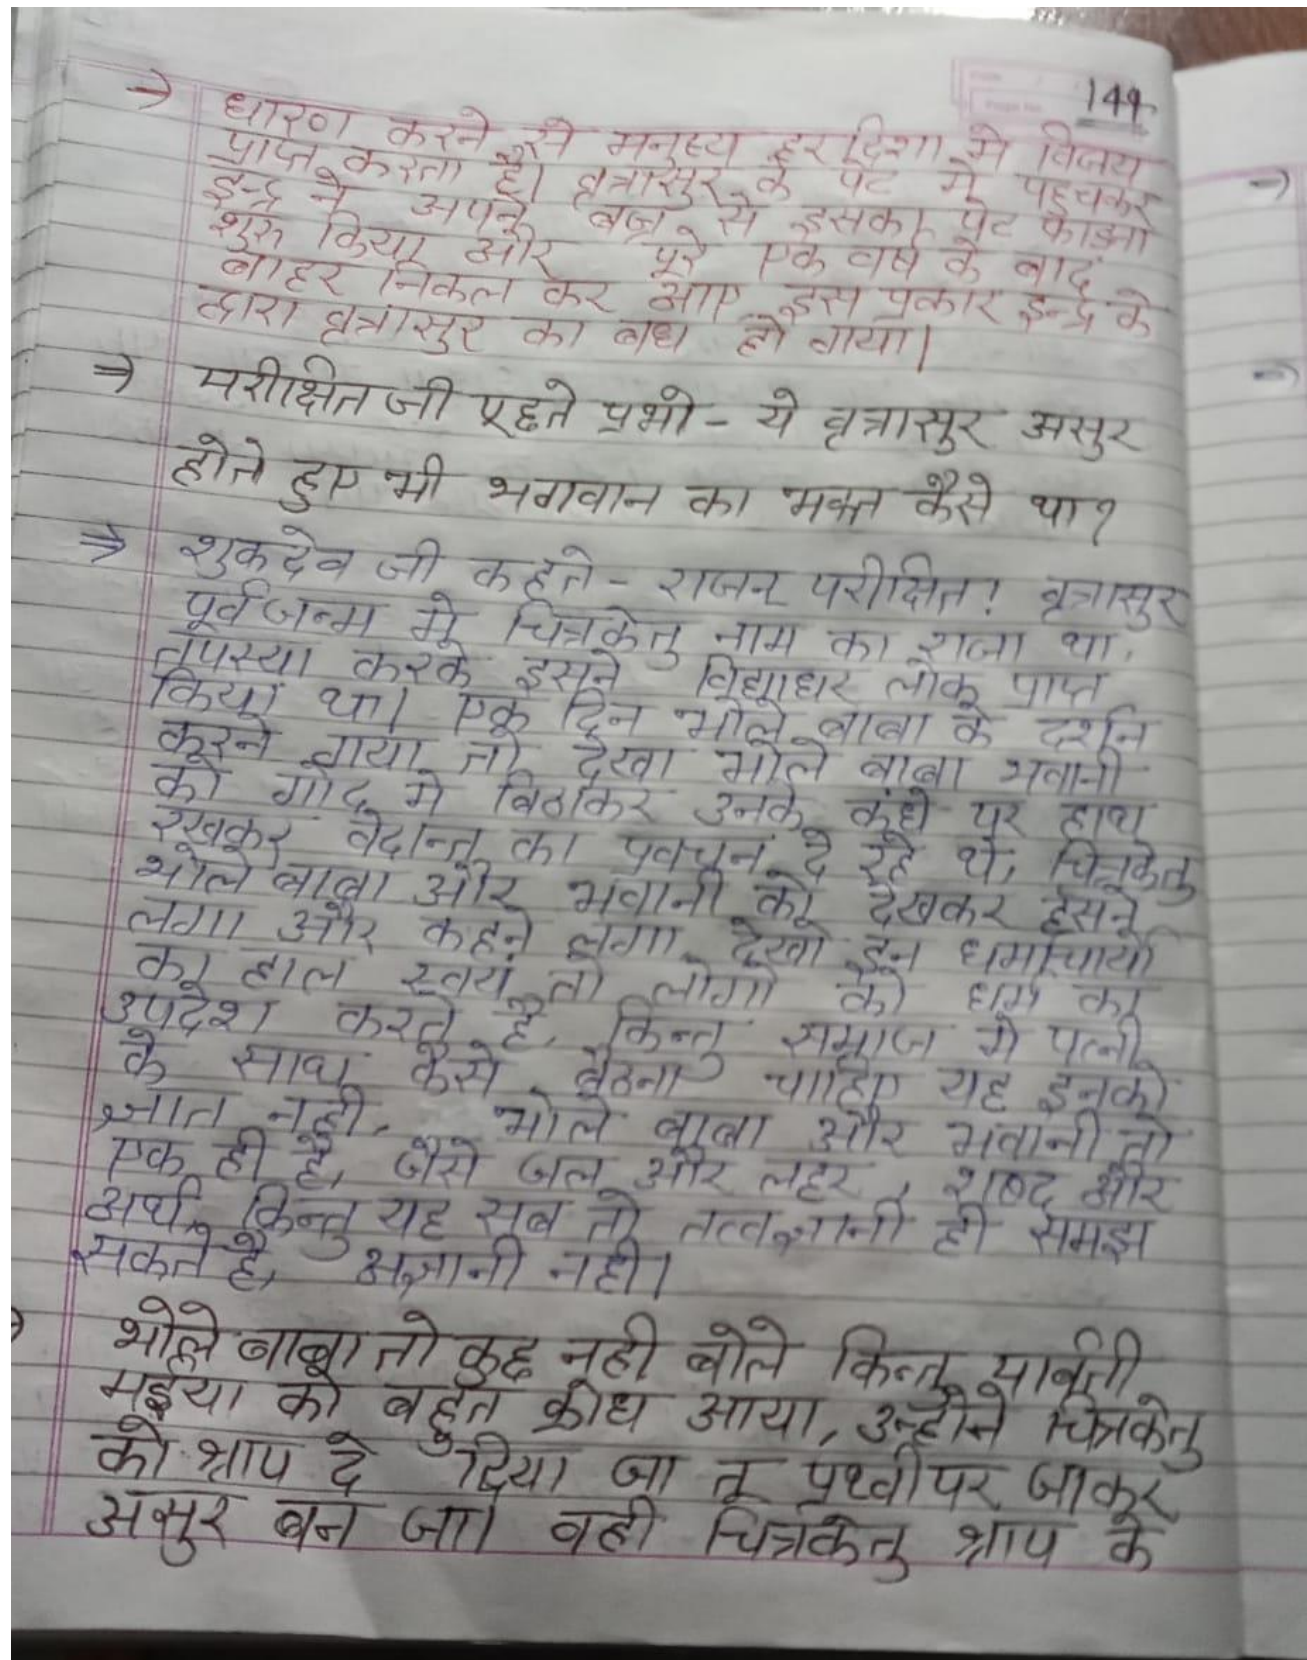 149
→ धारण करने से मनुष्य हर दिशा मे विजय
प्राप्त करता है। वृत्रासुर के पेट मे पहुचकर
इन्द्र ने अपने बज्र से इसका पेट फाडना
शुरु किया और पूरे एक वर्ष के बाद
बाहर निकल कर आए इस प्रकार इन्द्र के
द्वारा वृत्रासुर का बध हो गया।
⇒ परीक्षित जी पूछते प्रभो - ये वृत्रासुर असुर
होते हुए भी भगवान का भक्त कैसे था?
⇒ शुकदेव जी कहते - राजन परीक्षित! वृत्रासुर
पूर्वजन्म मे चित्रकेतु नाम का राजा था,
तपस्या करके इसने विद्याधर लोक प्राप्त
किया था। एक दिन भोले बाबा के दर्शन
करने गया तो देखा भोले बाबा भवानी
को गोद मे बिठाकर उनके कंधे पर हाथ
रखकर वेदान्त का प्रवचन दे रहे थे, चित्रकेतु
भोले बाबा और भवानी को देखकर हसने
लगा और कहने लगा देखो इन धर्माचार्यो
का हाल स्वयं तो लोगो को धर्म का
उपदेश करते है, किन्तु समाज मे पत्नी
के साथ कैसे बैठना चाहिए यह इनको
ज्ञात नही, भोले बाबा और भवानी तो
एक ही है, जैसे जल और लहर, शब्द और
अर्थ, किन्तु यह सब तो तत्वज्ञानी ही समझ
सकते है, अज्ञानी नही।
भोले बाबा तो कुछ नही बोले किन्तु पार्वती
मइया को बहुत क्रोध आया, उन्होने चित्रकेतु
को श्राप दे दिया जा तू प्रथ्वी पर जाकर
असुर बन जा। वही चित्रकेतु श्राप के